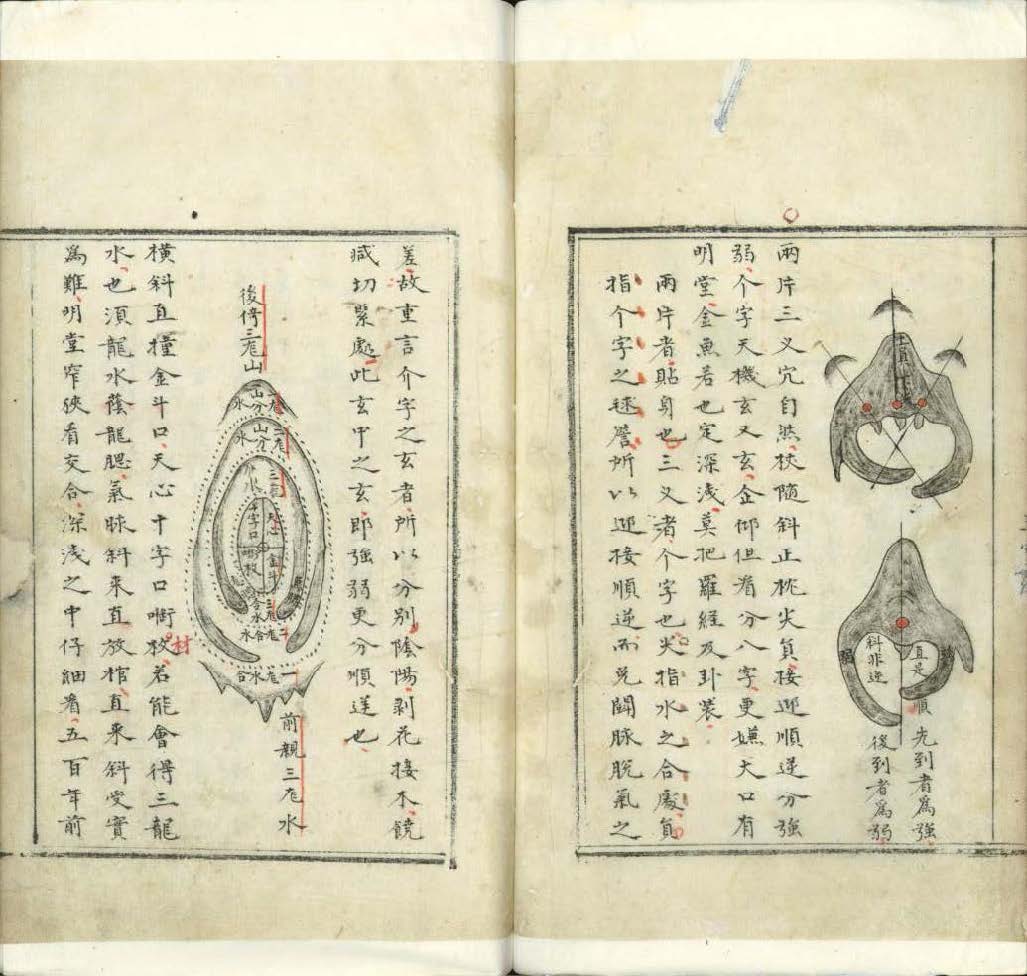 先到者爲強
後到者爲弱
順
直是
斜非逆
兩片三义穴自然杖隨斜正枕尖負接迎順逆分強
弱个字天機玄又玄金仰但看分八字更嫌大口有
明堂金魚若也定深浅莫把羅經及卦裝
兩片者貼身也三义者个字也尖指水之合處負
指个字之毬簷所以迎接順逆而免鬪脉脫氣之
差故重言个字之玄者所以分別陰陽剥花接木饒
减切緊處此玄中之玄即強弱更分順逆也
後倚三龙山
前親三龙水
橫斜直撞金斗口天心十字口啣枚若能會得三龍
材
水也須龍水蔭龍腮氣脉斜來直放棺直來斜受實
爲難明堂窄狹看交合深浅之中仔細看五百年前